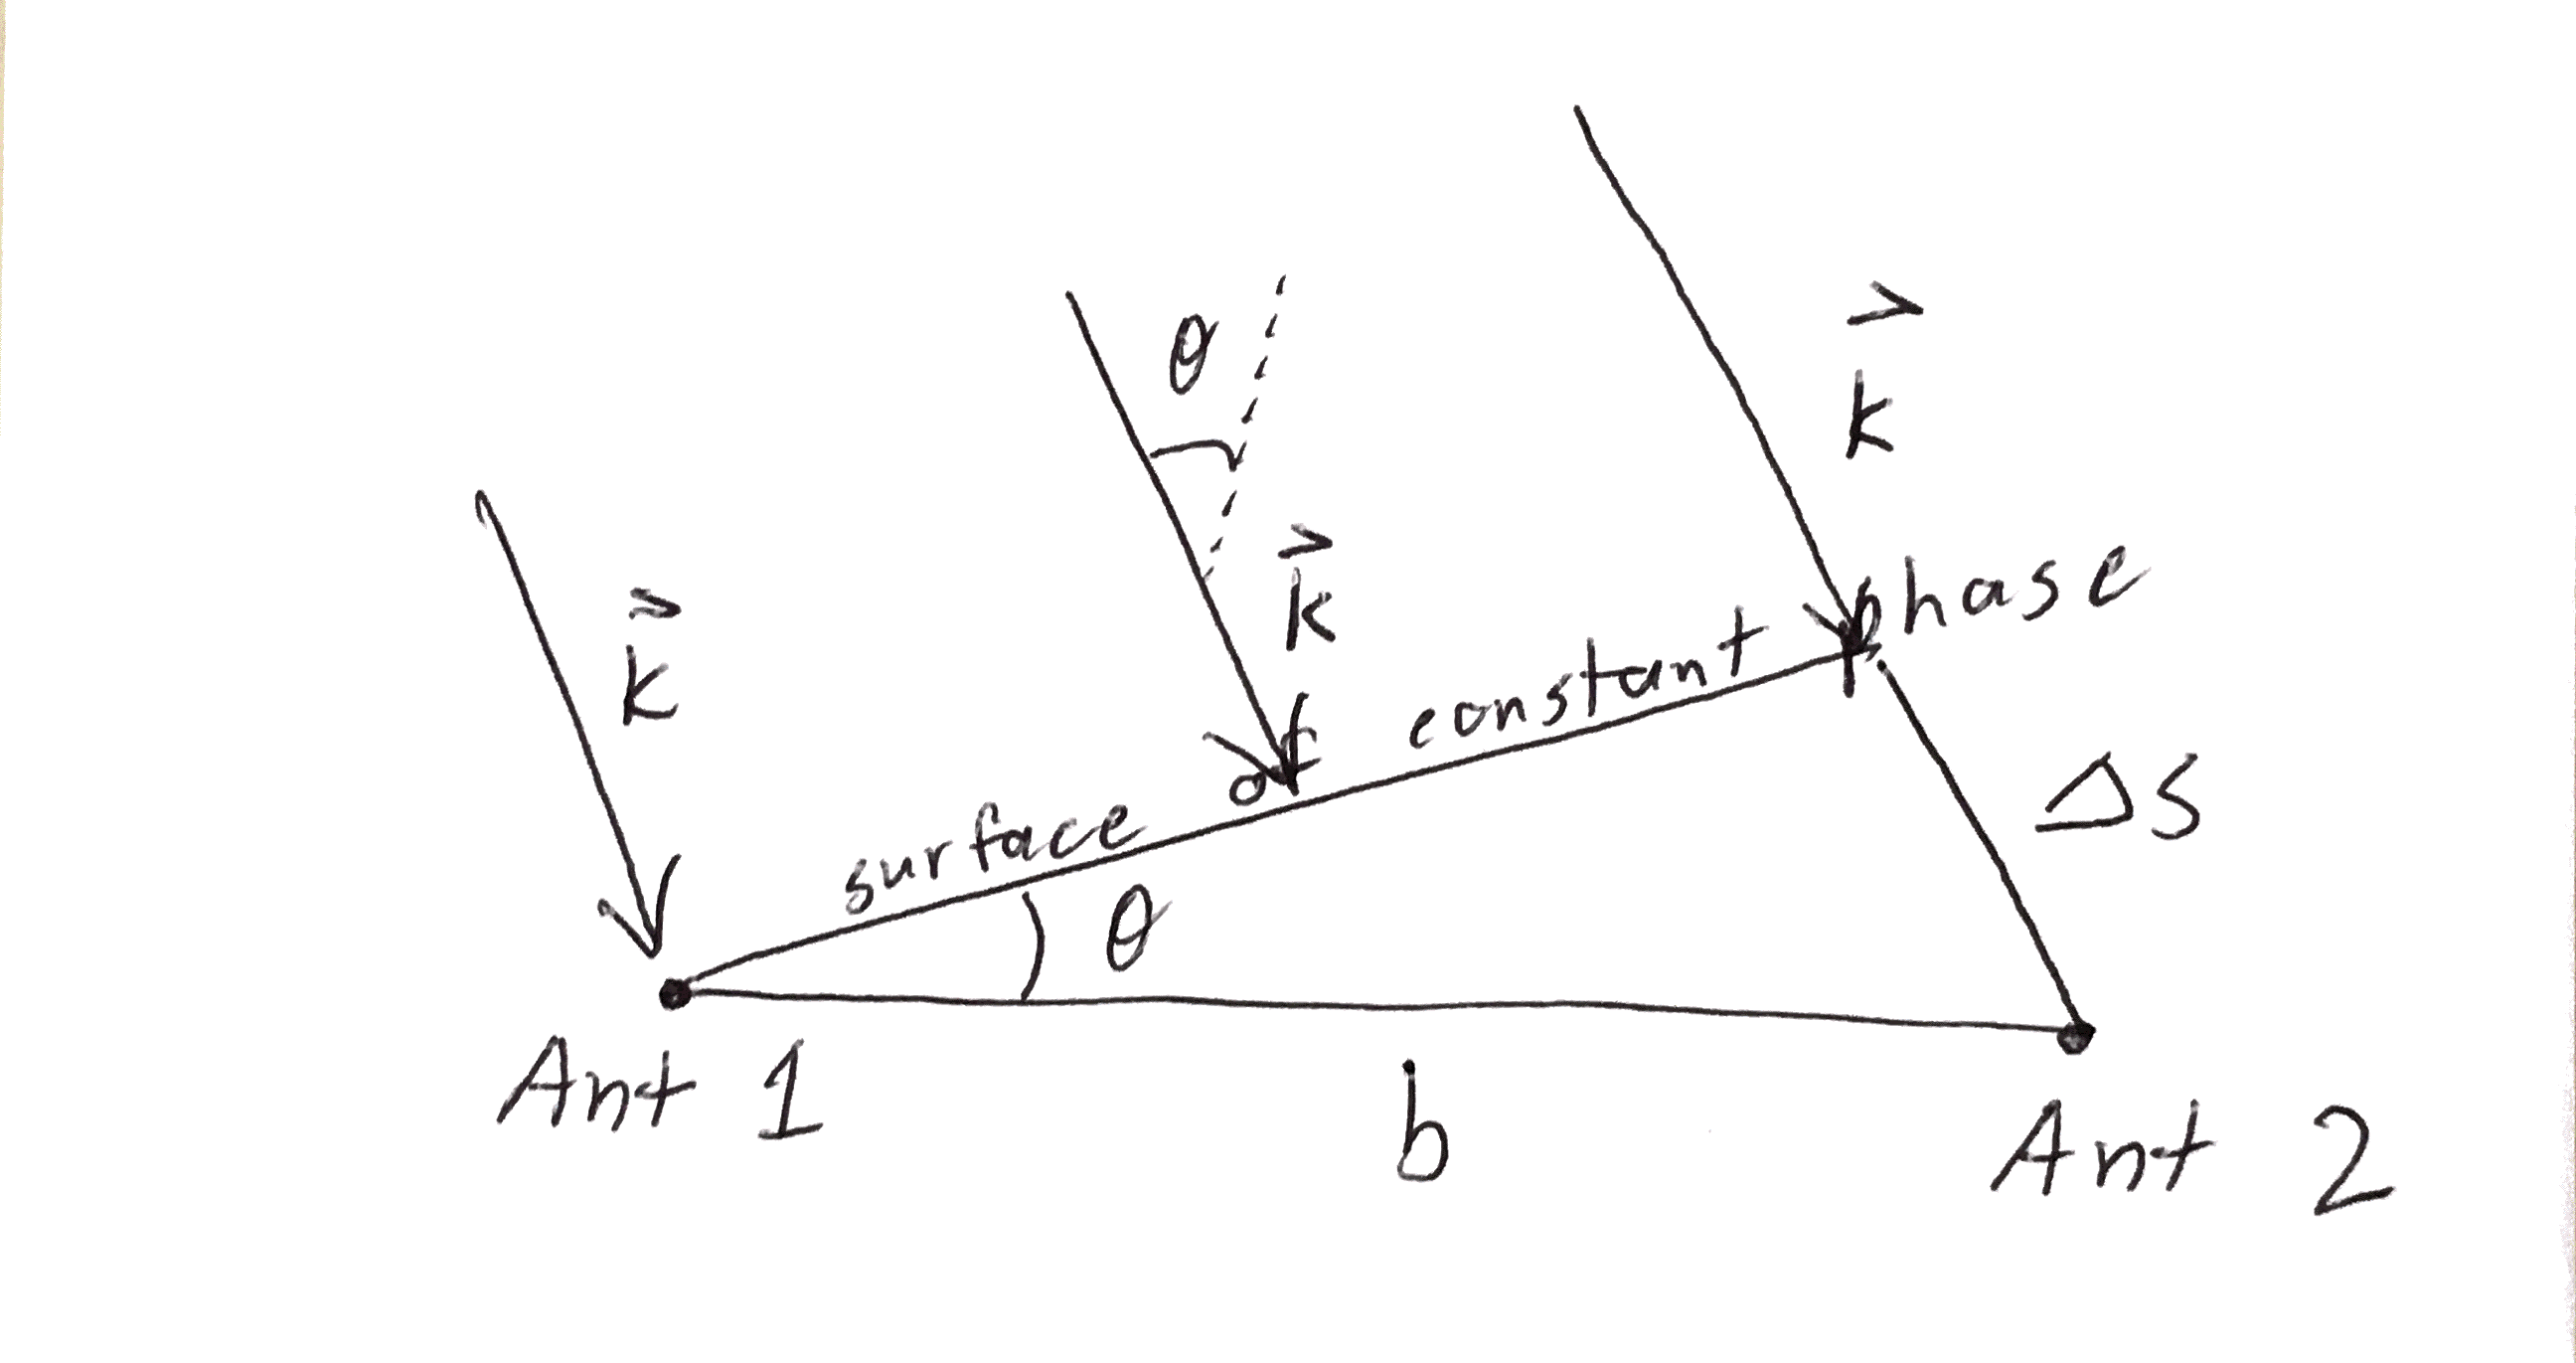 θ
k⃗
k⃗
k⃗
surface of constant phase
θ
Δs
Ant 1
b
Ant 2